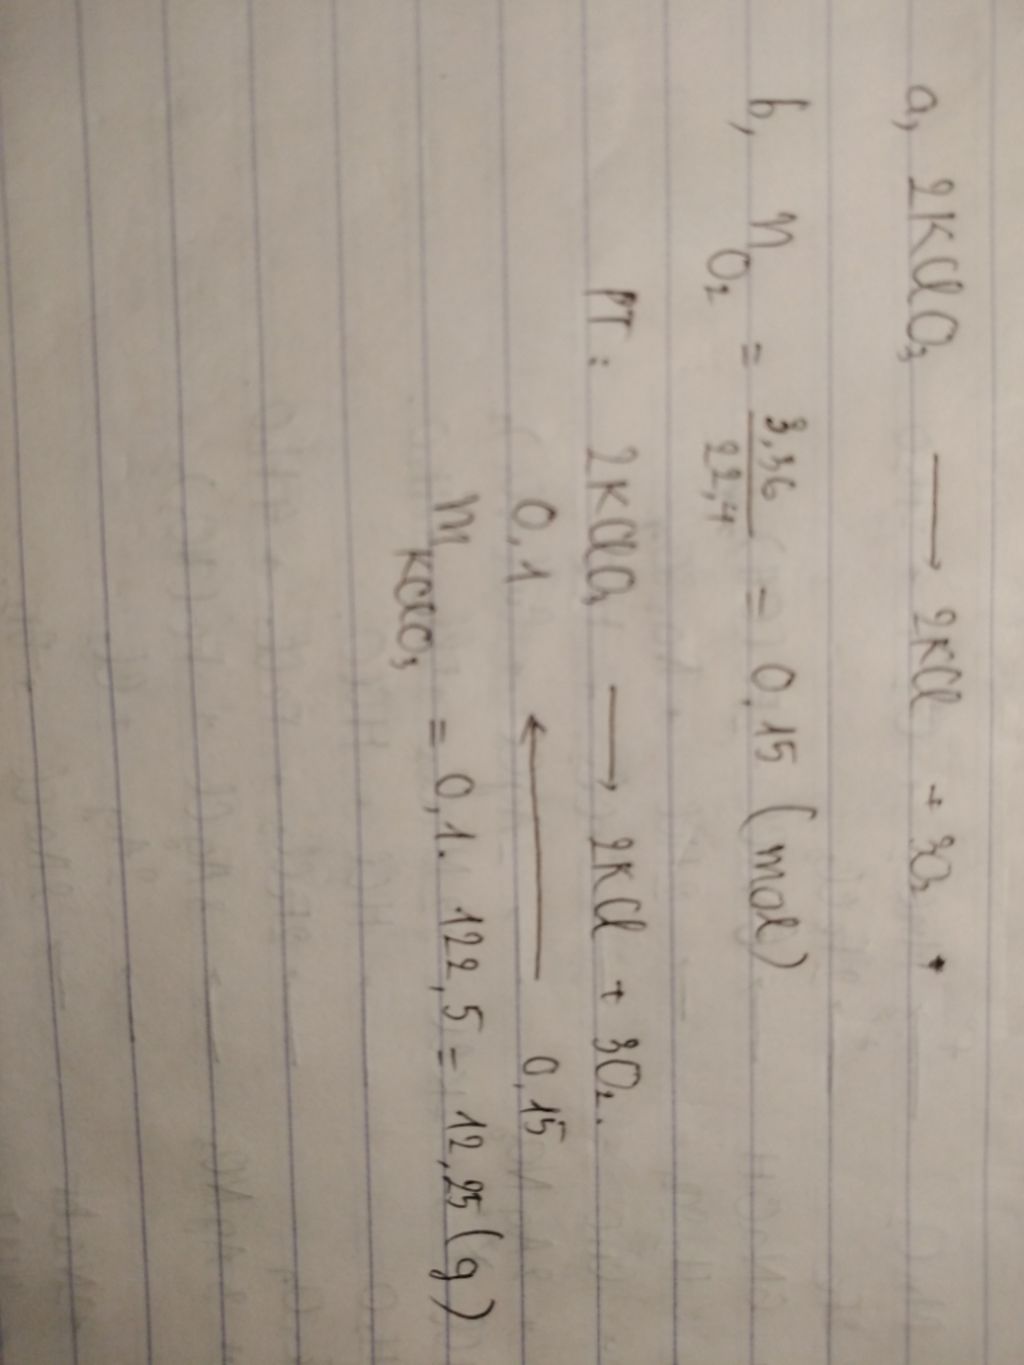 a, 2KClO₃ → 2KCl + 3O₂
b, n O₂ = 3,36 / 22,4 = 0,15 (mol)
PT: 2KClO₃ → 2KCl + 3O₂.
0,1 ← 0,15
m KClO₃ = 0,1. 122,5 = 12,25 (g)